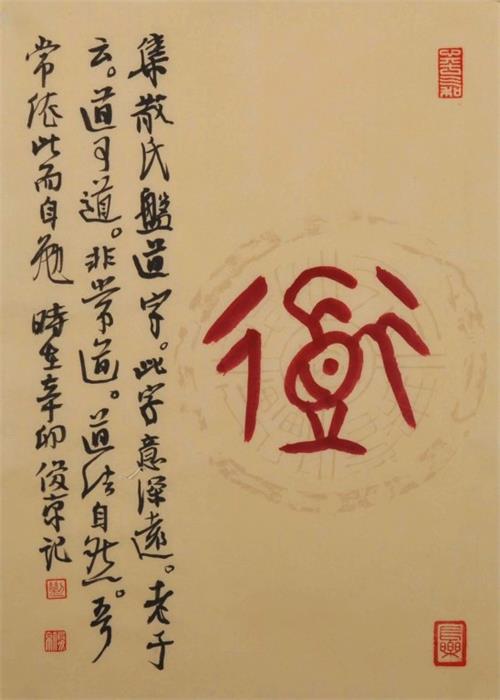 道
集散氏盤道字。此字意深遠。老子
云。道可道。非常道。道法自然。吾
常依此而自勉 時在辛卯俊京记
長樂